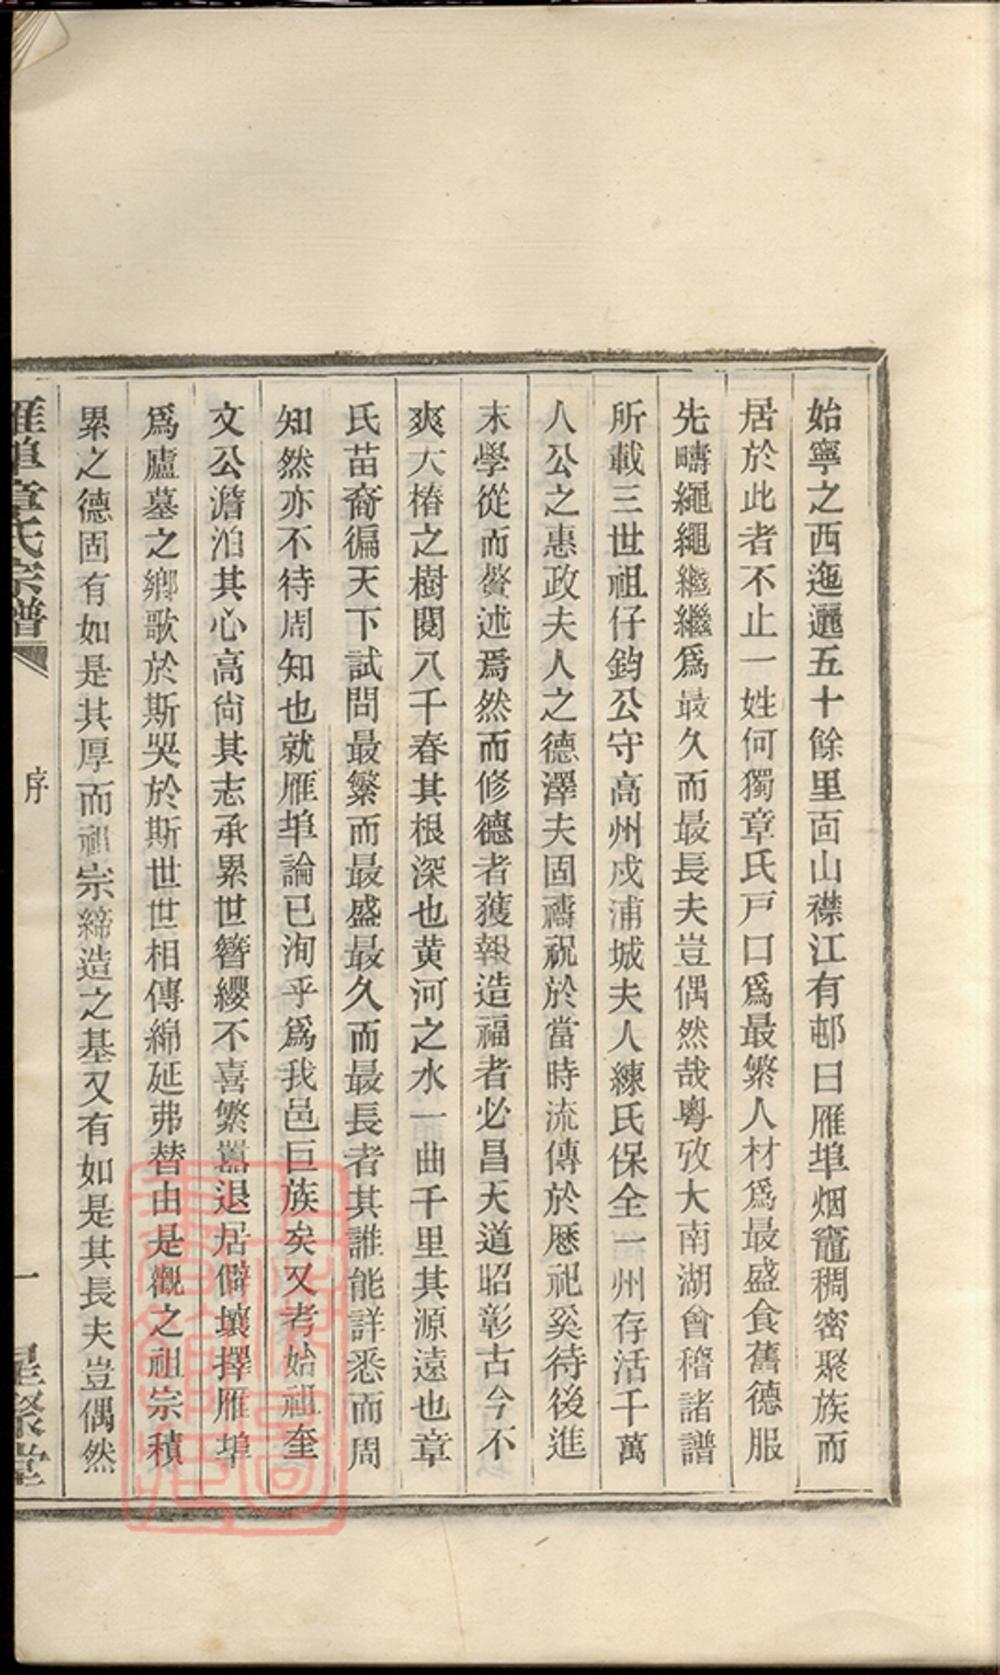 始寧之西迤邐五十餘里面山襟江有邨曰雁埠烟竈稠密聚族而
居於此者不止一姓何獨章氏戸口爲最繁人材爲最盛食舊德服
先疇繩繩繼繼爲最久而最長夫豈偶然哉粵攷大南湖會稽諸譜
所載三世祖仔鈞公守高州戍浦城夫人練氏保全一州存活千萬
人公之惠政夫人之德澤夫固禱祝於當時流傳於厯祀奚待後進
末學從而贅述焉然而修德者獲報造福者必昌天道昭彰古今不
爽大椿之樹閱八千春其根深也黄河之水一曲千里其源遠也章
氏苗裔徧天下試問最繁而最盛最久而最長者其誰能詳悉而周
知然亦不待周知也就雁埠論已洵乎爲我邑巨族矣又考始祖奎
文公澹泊其心高尙其志承累世簪纓不喜繁囂退居僻壤擇雁埠
爲廬墓之鄉歌於斯哭於斯世世相傳綿延弗替由是觀之祖宗積
累之德固有如是其厚而祖宗締造之基又有如是其長夫豈偶然
雁埠章氏宗譜
序
一
星聚堂
上海圖書館藏